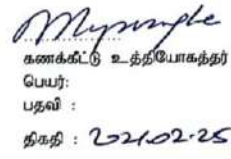 கணக்கீட்டு உத்தியோகத்தர்
பெயர்:
பதவி :
திகதி : 2021.02.25